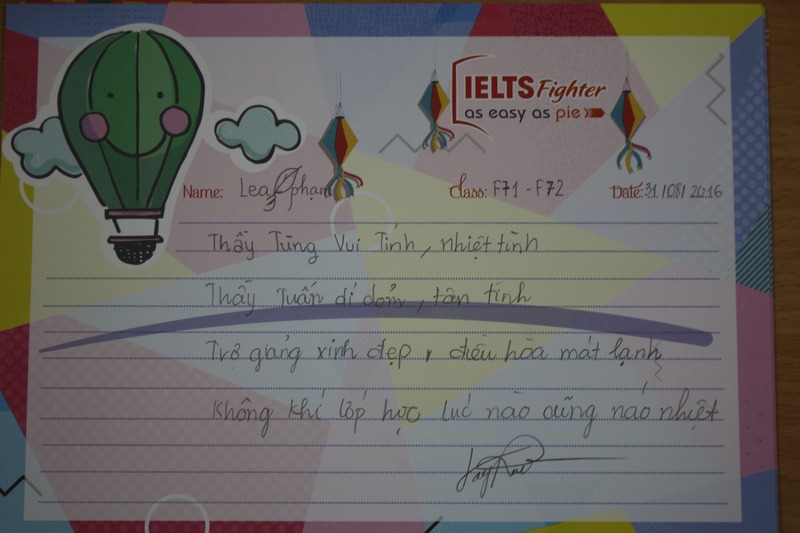 IELTS Fighter
as easy as pie
Name: Leaf phạm Class: F71 - F72 Date: 31/08/2016
Thầy Tùng Vui Tính, nhiệt tình
Thầy Tuấn dí dỏm, tận tình
Trợ giảng xinh đẹp, điều hòa mát lạnh
Không khí lớp học lúc nào cũng náo nhiệt